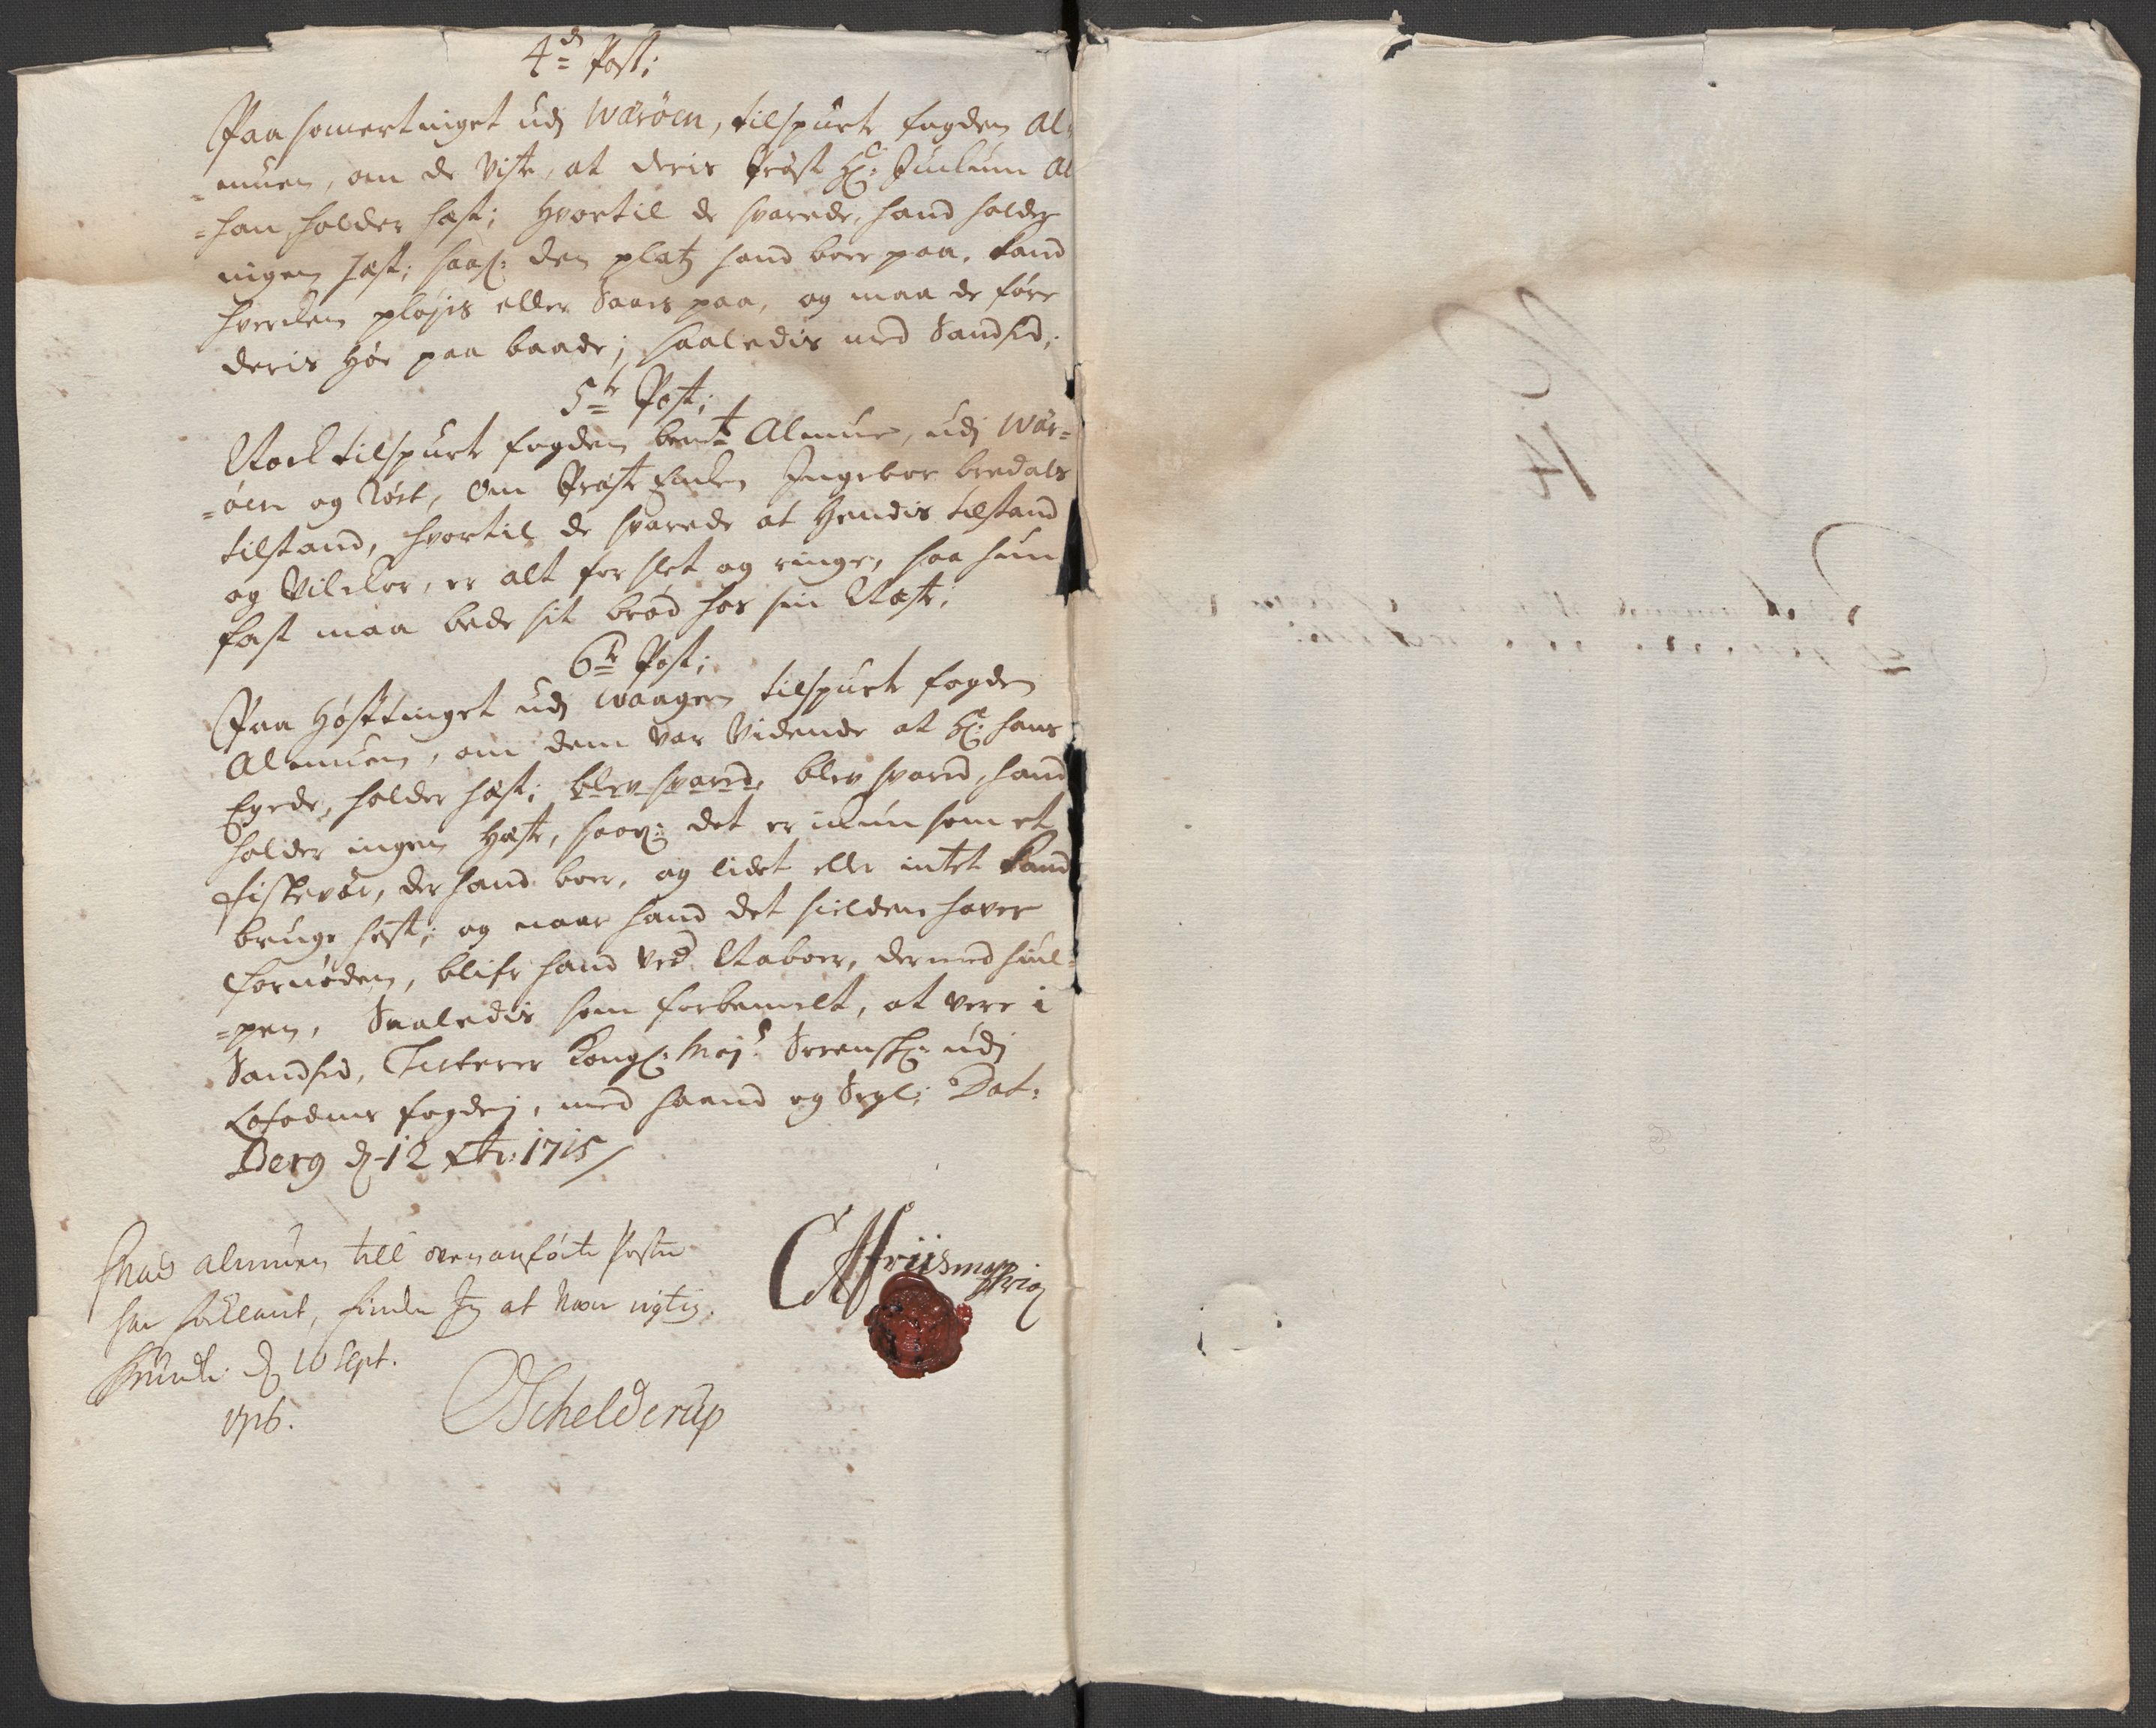 4de Post;
Paa somertinget udj Wäröen, tilspurte fogden Al=
=muen, om de viste, at deris Præst Hr: Juulum al
=han holder hæst; Hvortil de svarede, hand holder
ingen hæst; saas: den platz hand boer paa, kand
hverchen pløjes eller Saaes paa, og maa de føre
deris Høe paa baade; saaledis ved Sandhed;
5te Post;
Nock tilspurte fogden bemte Almue, udj Wär=
=öen og Röst, om Præste Encken Ingebor bredals
tilstand, hvortil de svarede at Hendis tilstand
og Vilckor, er alt for slet og ringe, saa hun
fast maa bede sit brød hos sin Næste;
6te Post;
Paa Høsttinget udj Waagen tilspurte fogden
Almuen, om dem var Vidende at Hr: Hans
Egede, holder hæst; blev svared, blev svared, hand
holder ingen Hæste, saas: det er ikkun som et
fiskevær, der hand boer, og lidet eller intet kand
bruge hæst; og naar hand det sielden haver
fornøden, blifr hand ved Naboer, dermed hiul=
=pen, Saaledis som forbemelt, at vere i
Sandhed, Testerer Kongl: Mayts Sorenskr: udj
Lofodens fogderj, med haand og Segl; Dat:
Berg d: 12 xbr: 1715
Hvad almuen till ovenanførte Poster
har forklaret, finder Jeg at være rigtig.
Trundh: d 10 Sept.
1716.
Schelderup
Friis
14